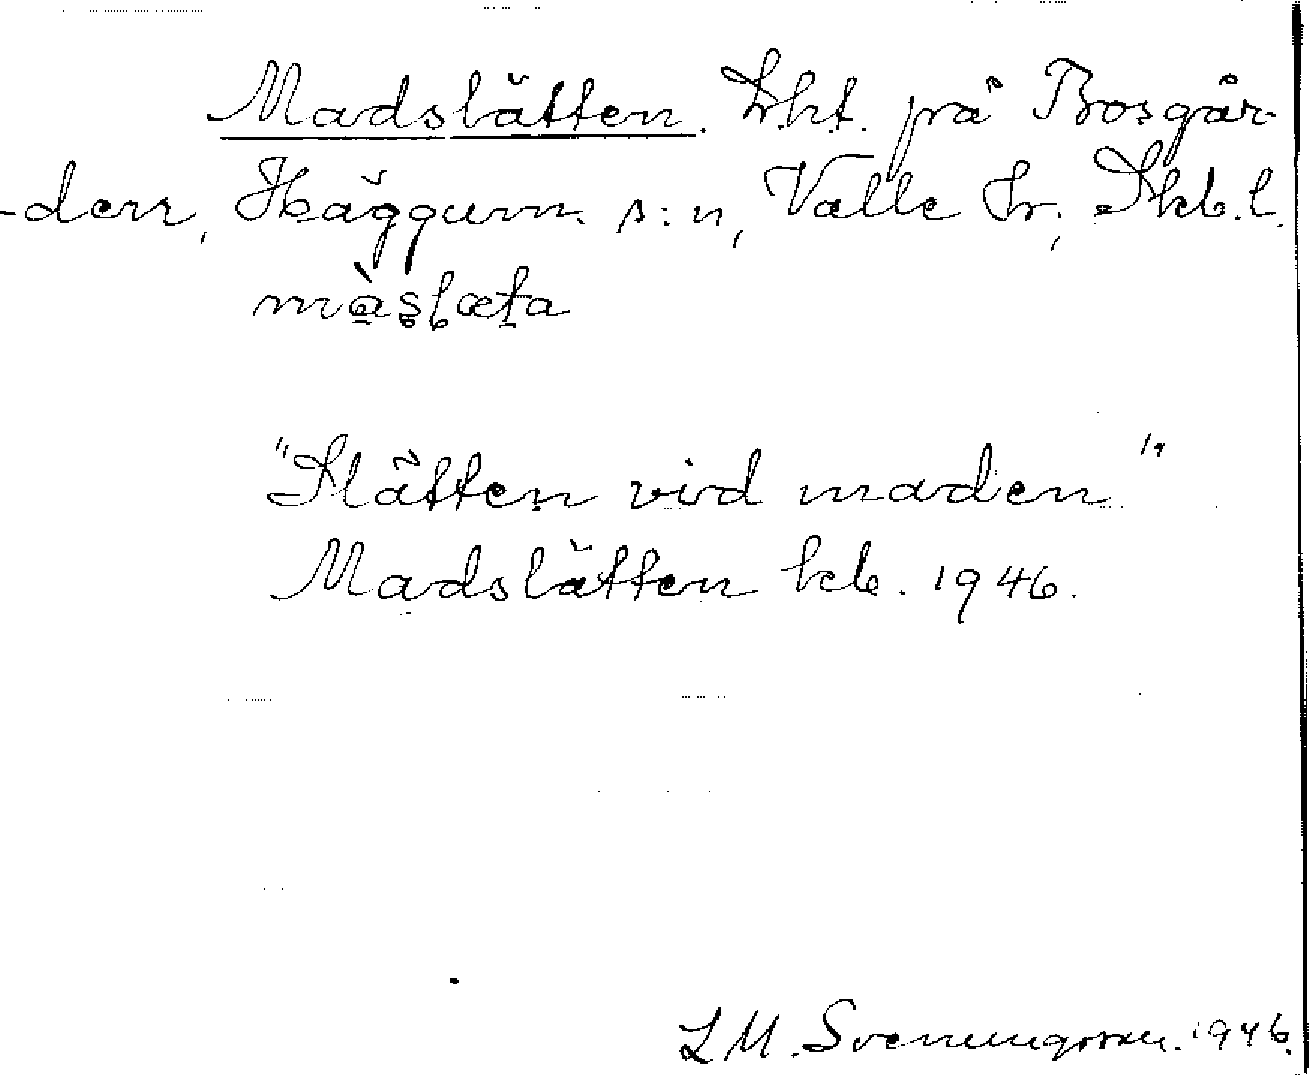 Madslätten. Lht. på Bosgår-
den, Häggum s:n, Valle hr, Skb.l.
màslæta
"Slätten vid maden"
Madslätten kb. 1946.
L M. Svenungsson. 1946.